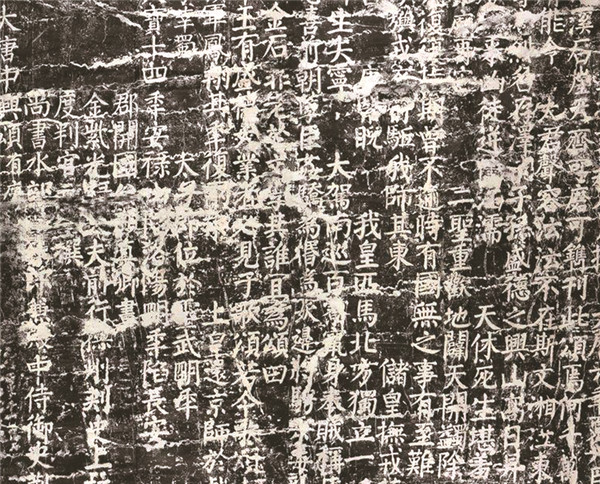 大唐中興頌有序
尚書水部員外郎兼殿中侍御史荊
度判官元結撰
金紫光祿大夫前行撫州刺史上柱
郡開國公顏真卿書
寶十四年安祿山陷洛陽明年陷長安
幸蜀 太子即位於靈武明年
軍鳳翔其年復兩京 上皇還京師於戲
王有盛德大業者必見于歌頌若今歌頌
金石非老於文學其誰宜為頌曰
嘻前朝孽臣姦驕為惛為妖邊將騁兵毒
生失寧 大駕南巡百寮竄身奉賊稱
唐繄睨 我皇匹馬北方獨立一
旟戎卒前驅我師其東 儲皇撫戎
復指期曾不逾時有國無之事有至難
廟再安 二聖重歡地闢天開蠲除
凶徒逆儔涵濡 天休死生堪羞
烈名存澤流子孫盛德之興山高日昇
能令大君聲容沄沄不在斯文湘江東
溪石崖天齊可磨可鐫刊此頌焉何千萬